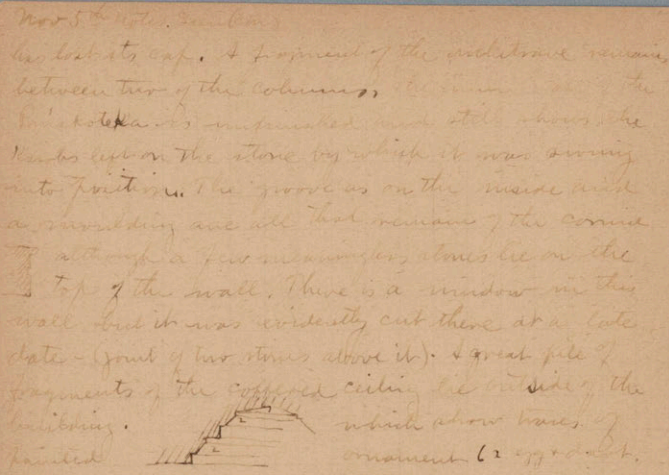 Nov 5th Notes.
has lost its cap. A fragment of the architrave remains
between two of the columns, the inner of the
is unfinished and still shows the
knobs left on the stone by which it was swung
into position. The groove is on the inside and
a moulding are all that remain of the cornice
although a few meaningless stones lie on the
top of the wall. There is a window in this
wall but it was evidently cut there at a late
date - (joint of two stones above it). A great pile of
fragments of the coffered ceiling lie outside of the
building. which show traces of
painted ornament (2 egg & dart.
2